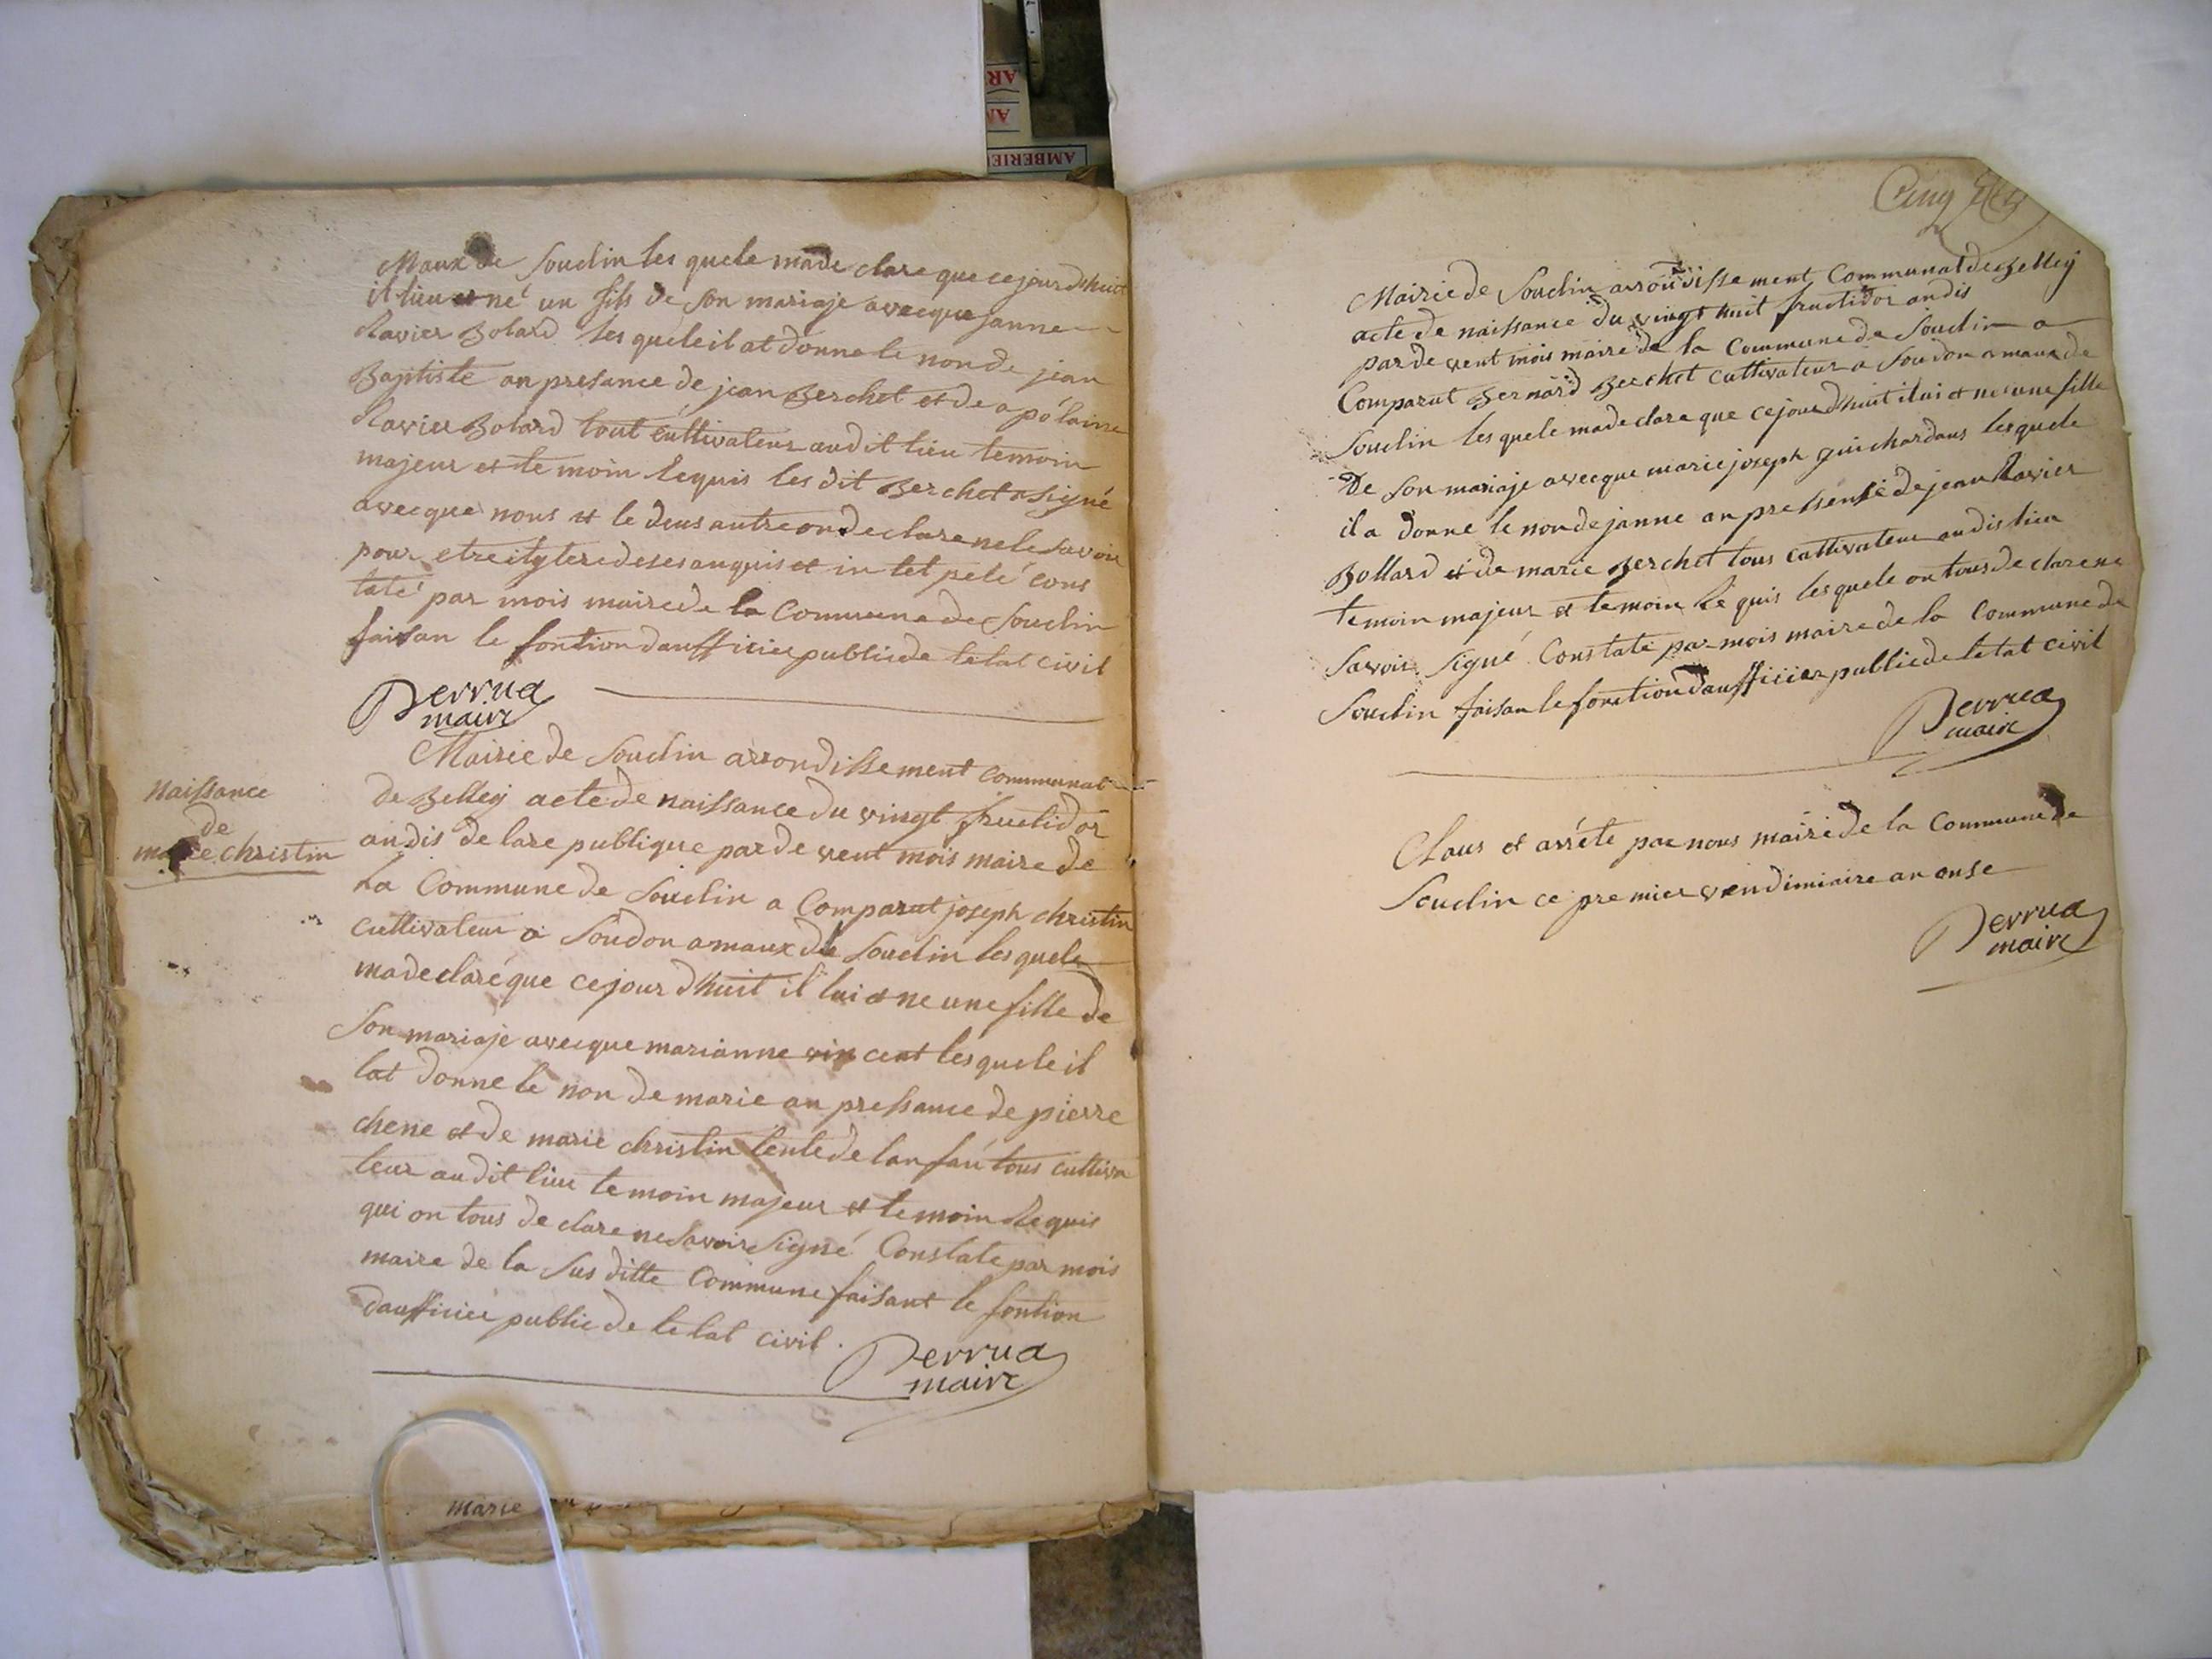 maux de Souclin les quele made clare que ce jourdhuit
il lieu et né un fils de son mariaje avecque janne
Ravier Bolard les quele il at donne le non de jean
Baptiste an presance de jean Berchet et de apólaine
Ravier Bolard tout cultivateur audit lieu temoin
majeur et te moin Requis les dit Berchet a signé
avecque nous et le deus autre on declare ne le savoir
pour etre
taté par mois maire de la Commune de Souclin
faisan le fontion daufficier public de letat civil
Perrua
maire
Mairie de Souclin arrondissement communal
de Belley acte de naissance du vingt fructidor
an dis de lare publique par de vent mois maire de
La Commune de Souclin a Comparut joseph christin
cultivateur a Soudon amaux de Souclin les quele
made claré que ce jour dhuit il lui et ne une fille de
Son mariaje avecque marianne vincent les quele il
lat donne le non de marie an pressance de pierre
chene et de marie christin tente de lanfan tous cultiva
teur audit lieu temoin majeur et temoin Requis
qui on tous de clare ne savoir signé Constate par mois
maire de la sus ditte Commune faisant le fontion
daufficier public de letat civil.
Perrua
maire
Naissance
de
marie christin
marie
Cinq
Mairie de Souclin arrondissement Communal de Belley
acte de naissance du vingt huit fructidor an dis
par de vent mois maire de la Commune de Souclin a
Comparut Bernard Berchet cultivateur a Soudon amaux de
Souclin les quele made clare que ce jour dhuit il lui et ne une fille
De son mariaje avecque marie joseph guichardans les quele
il a donne le non de janne an pressensé de jean Ravier
Bollard et de marie Berchet tous cultivateur audis lieu
temoin majeur et temoin Requis les quele on tous de clare ne
savoir signé Constaté par mois maire de la Commune de
Souclin faisan le fonction daufficier public de letat civil
Perrua
maire
Claus et arréte par nous maire de la Commune de
Souclin ce premier vendimiaire an onse
Perrua
maire
AR
AM
AMBERIE